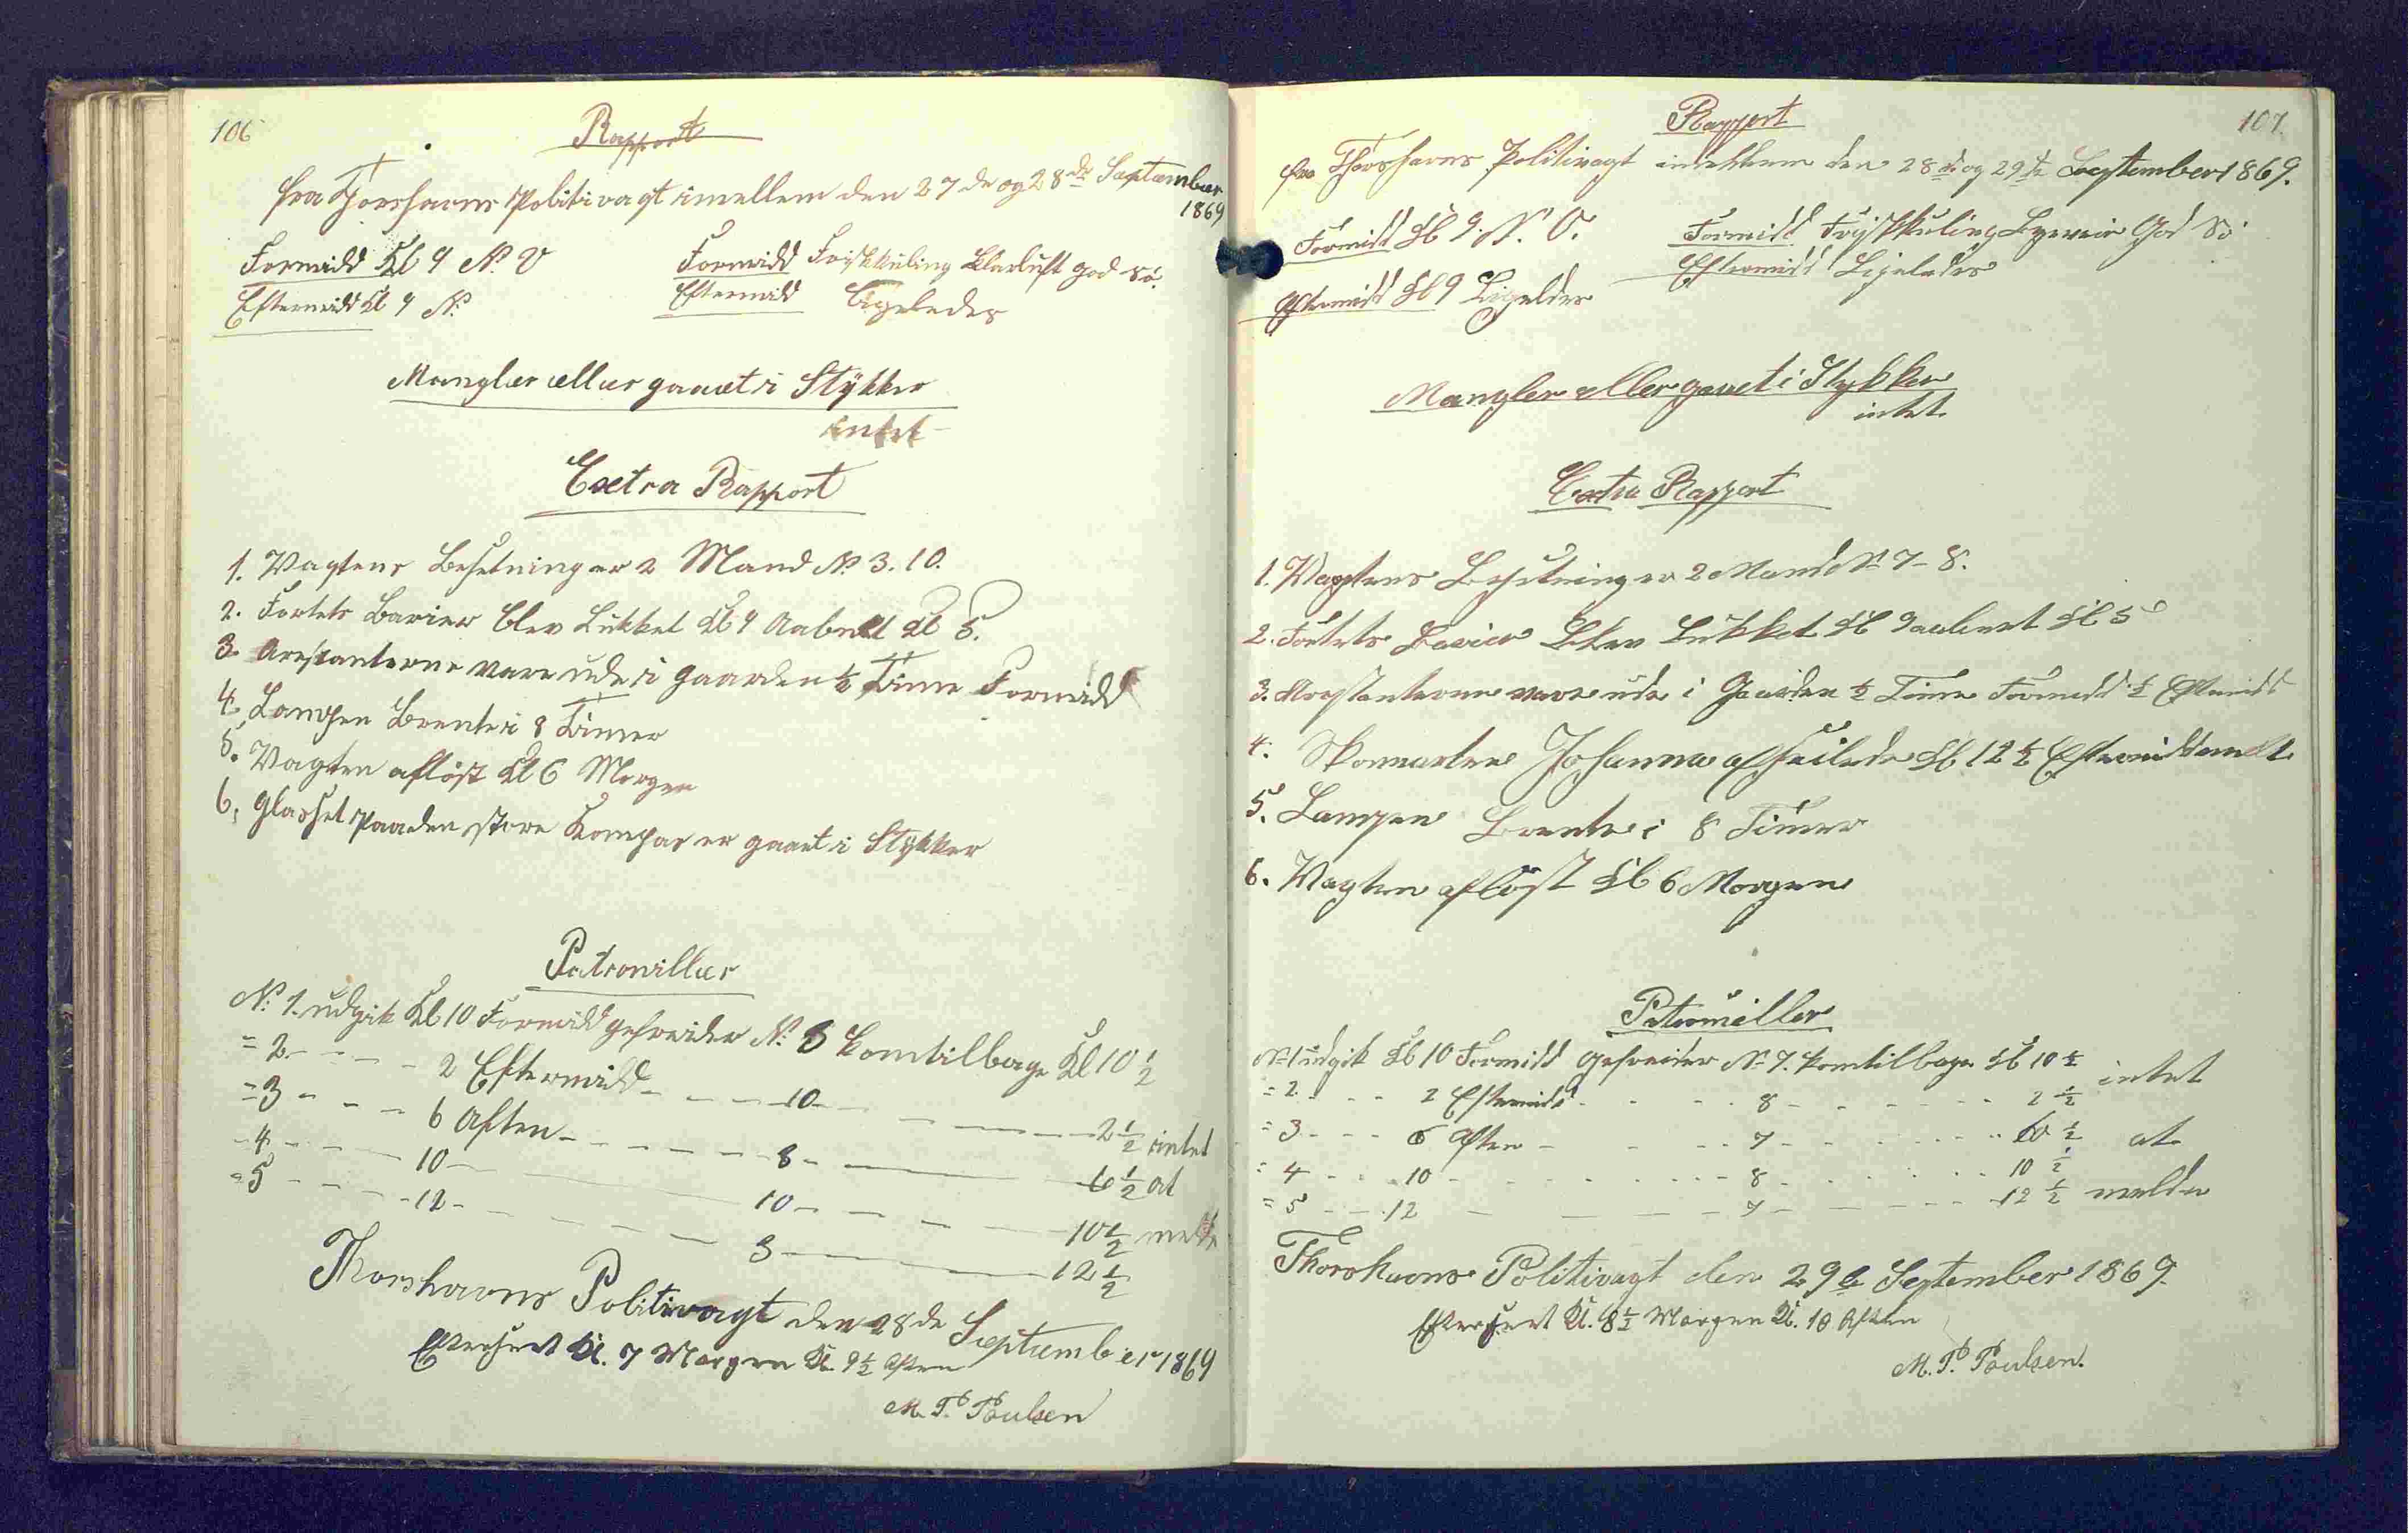 106
Rapport
fra Thorshavns Politivagt imellem den 27de og 28de September
1869
Formidd Kl 9 N. V
Eftermidd Kl 9 N.
Formidd Friskkuling Klarluft god Sö.
Eftermidd Ligeledes
Mangler eller gaaet i Stykker
intet
Extra Rapport
1. Vagtens Besetning er 2 Mand No 3. 10.
2. Fortets Barier blev Lukket Kl 9 Aabnet Kl 5.
3. Arestanterne vare ude i Gaarden ½ Time Formidd
4. Lampen Brente i 8 Timer
5. Vagten aflöst Kl 6 Morgen
6. Glasset paa den store Kompas er gaaet i Stykker
Patrouiller
No 1. udgik Kl 10 Formidd gefreider No 3 kom tilbage Kl 10 ½
= 2 - - - - 2 Eftermidd - - - 10 - - - - 2 ½ intet
= 3 - - - 6 Aften - - - - - 8 - - - 6 ½ at
- 4 - - - 10 - - - 10 - - - - 10 ½ melde
= 5 - - - - 12 - - - - 3 - - - 12 ½
Thorshavns Politivagt den 28de September 1869
Efterseet Kl. 7 Morgen Kl. 9 ½ Aften
M. P. Poulsen
107.
Rapport
fra Thorshavns Politivagt imellem den 28de og 29de September 1869.
Formidd Kl 9. N. O.
Eftermidd Kl 9 Ligeledes
Formidd Friskkuling God Sö
Eftermidd Ligeledes
Mangler eller gaaet i Stykker
intet
Extra Rapport
1. Vagtens Besetning er 2 Mand No 7 - 8.
2. Fortets Barier Blev Lukket Kl 9 aabnet Kl 5
3. Arestanterne vare ude i Gaarden ½ Time Formidd ½ Eftermidd
4. Skonnerten Johanna afseilede Kl 12 ½
5. Lampen Brente i 8 Timer
6. Vagten aflöst Kl 6 Morgen
Patrouiller
No 1 udgik Kl 10 Formidd Gefreider No 7. kom tilbage Kl 10 ½
= 2 - - - 2 Eftermidd - - - 8 - - - - - 2 ½ intet
= 3 - - - 6 Aften - - - 7 - - - - 6 ½ at
= 4 - - 10 - - - - - 8 - - - - 10 ½
= 5 - - 12 - - - - - 7 - - - - 12 ½ melde
Thorshavns Politivagt den 29de September 1869.
Efterseet Kl. 8 ½ Morgen Kl. 10 Aften
M. P. Poulsen.